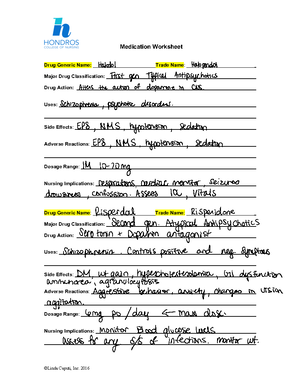 HONDROS
COLLEGE OF NURSING
Medication Worksheet
Drug Generic Name: Haldol Trade Name: Haloperidol
Major Drug Classification: First gen Typical Antipsychotics
Drug Action: Alters the action of dopamine in CNS.
Uses: Schizophrenia, psychotic disorders.
Side Effects: EPS, NMS, hypotension, sedation
Adverse Reactions: EPS, NMS, hypotension, sedation
Dosage Range: IM 10-20mg
Nursing Implications: respirations, cardiac monitor, seizures
drowsiness, confusion. Assess I&O, Vitals
Drug Generic Name: Risperdal Trade Name: Risperidone
Major Drug Classification: Second gen. Atypical Antipsychotics
Drug Action: Serotonin + Dopamin antagonist
Uses: Schizophrenia. Controls positive and neg. symptoms
Side Effects: DM, wt gain, hypercholesterolemia, GI dysfunction
agranulocytosis
Adverse Reactions: Aggressive behavior, anxiety, changes in vision
agitation.
Dosage Range: 6mg po / day ← max dose.
Nursing Implications: monitor Blood glucose levels
Assess for any s/s of infections, monitor wt.
©Linda Caputi, Inc. 2016